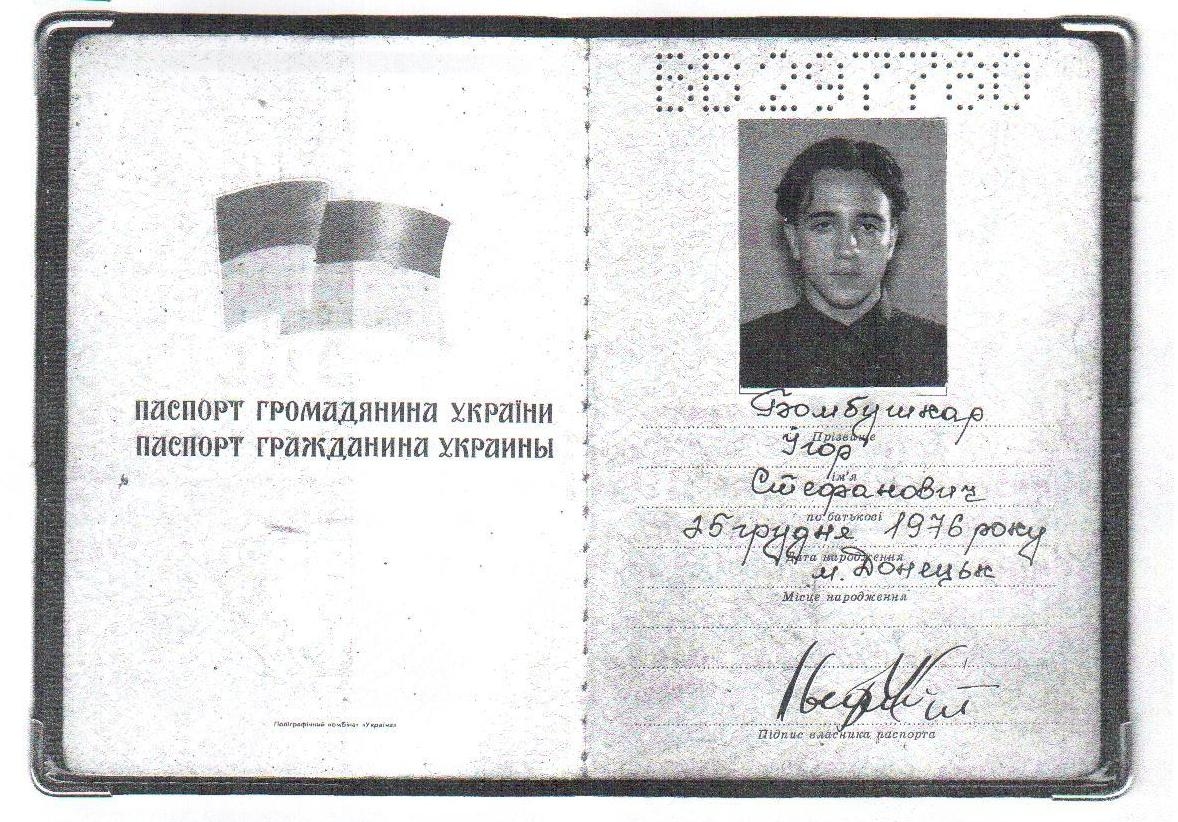 ПАСПОРТ ГРОМАДЯНИНА УКРАЇНИ
ПАСПОРТ ГРАЖДАНИНА УКРАИНЫ
Поліграфічний комбінат «Україна»
ВВ 297760
Бомбушкар
Прізвище
Ігор
ім'я
Стефанович
по батькові
25 грудня 1976 року
Дата народження
м. Донецьк
Місце народження
Підпис власника паспорта